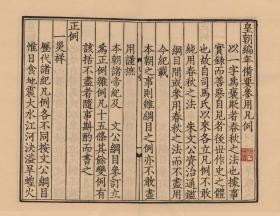 皇朝編年備要參用凡例
以一字為褒貶者春秋之法也據事
實錄而善惡自見者後世作史之體
也故自司馬氏以來各立凡例不敢
純用春秋之法 朱文公資治通鑑
綱目間或參用春秋之法而不盡用
今紀載
本朝之事則雖綱目之例亦不敢盡
用謹摭
本朝諸帝紀及 文公綱目參訂立
為正例雜例凡十五條其餘變例有
該括不盡者隨事斟酌而書之
正例
一災祥
歷代諸紀凡例各不同按文公綱目
惟日食地震大水江河決溢旱蝗火